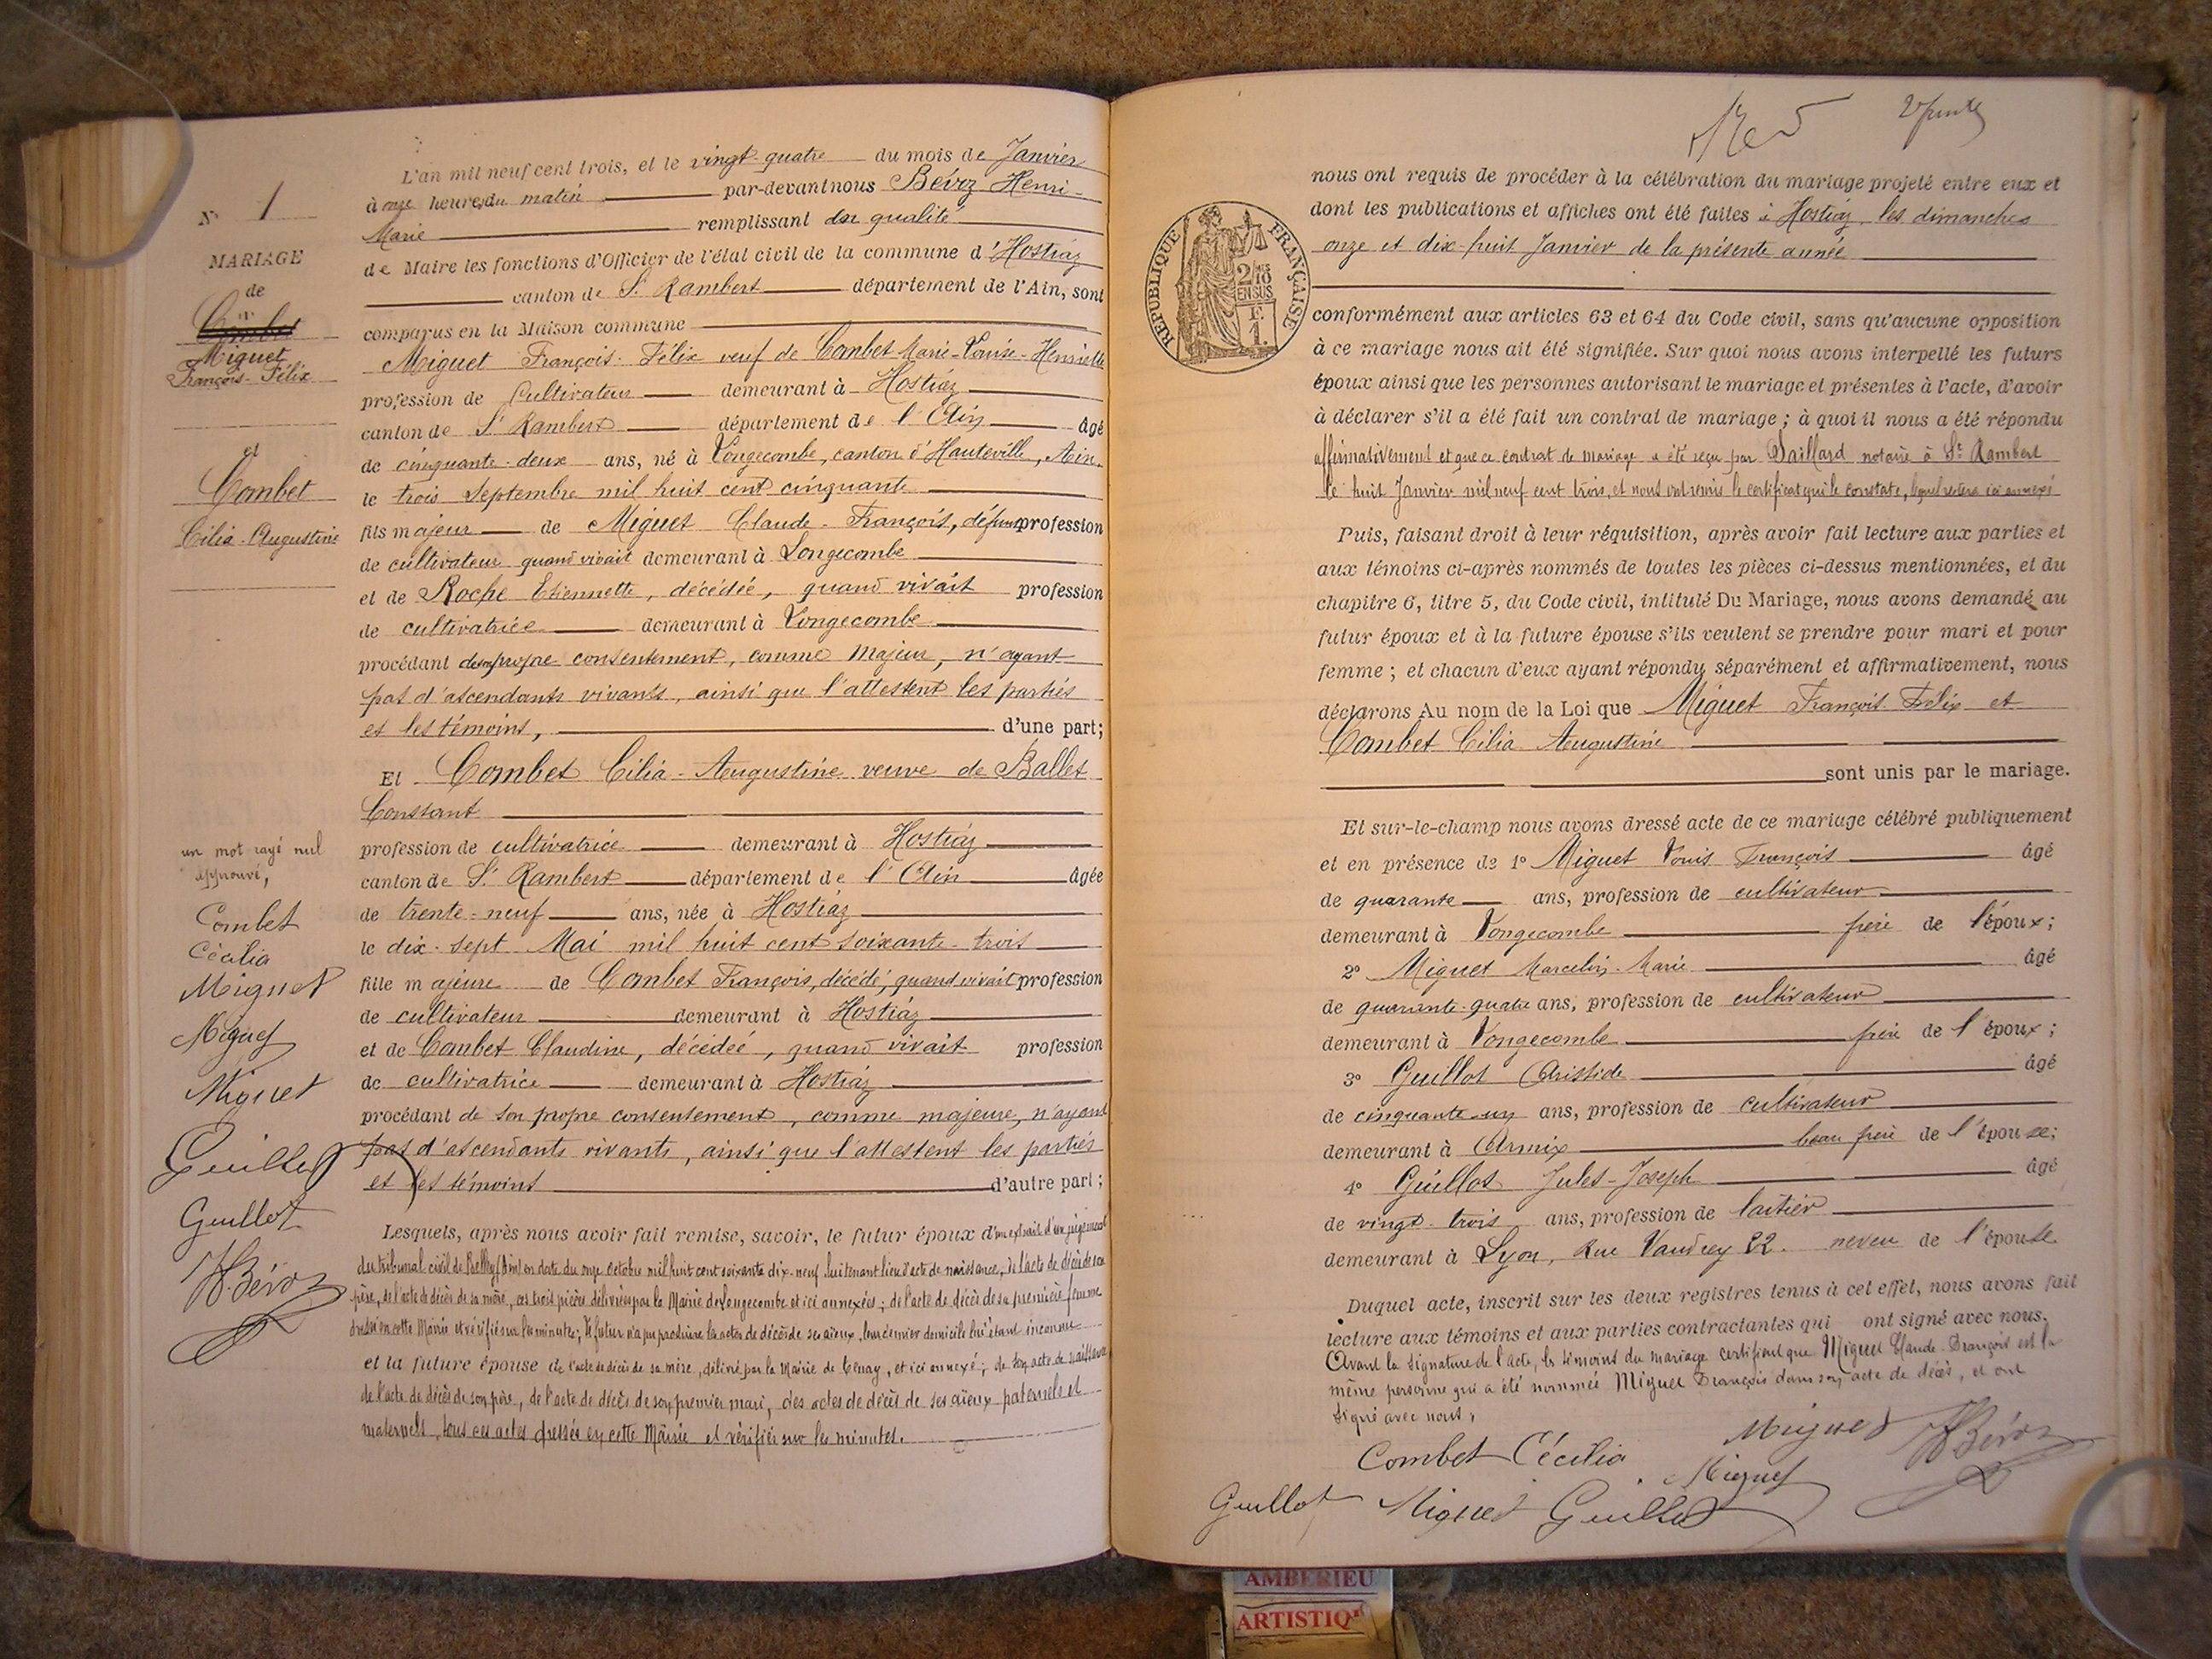 L'an mil neuf cent trois, et le vingt-quatre du mois de Janvier
à onze heures du matin par-devant nous Bévoz Henri-
Marie remplissant en qualité
de Maire les fonctions d'Officier de l'état civil de la commune d'Hostiaz
canton de St Rambert département de l'Ain, sont
comparus en la Maison commune
Miguet François-Félix veuf de Combet Marie-Louise-Henriette
profession de Cultivateur demeurant à Hostiaz
canton de St Rambert département de l'Ain âgé
de cinquante-deux ans, né à Longecombe, canton d'Hauteville, Ain.
le trois Septembre mil huit cent cinquante
fils majeur de Miguet Claude-François, défunt profession
de cultivateur quand vivait demeurant à Longecombe
et de Roche Etiennette, décédée, quand vivait profession
de cultivatrice demeurant à Longecombe
procédant de son propre consentement, comme majeur, n'ayant
pas d'ascendants vivants, ainsi que l'attestent les parties
et les témoins, d'une part;
Et Combet Cilia-Augustine veuve de Ballet
Constant
profession de cultivatrice demeurant à Hostiaz
canton de St Rambert département de l'Ain âgée
de trente-neuf ans, née à Hostiaz
le dix-sept Mai mil huit cent soixante-trois
fille majeure de Combet François, décédé, quand vivait profession
de cultivateur demeurant à Hostiaz
et de Combet Claudine, décédée, quand vivait profession
de cultivatrice demeurant à Hostiaz
procédant de son propre consentement, comme majeure, n'ayant
pas d'ascendants vivants, ainsi que l'attestent les parties
et les témoins d'autre part;
Lesquels, après nous avoir fait remise, savoir, le futur époux d'un extrait d'un jugement
du tribunal civil de Belley (Ain) en date du onze Octobre mil huit cent soixante dix-neuf lui tenant lieu d'acte de naissance, de l'acte de décès de son
père, de l'acte de décès de sa mère, ces trois pièces délivrées par la Mairie de Longecombe et ici annexées; de l'acte de décès de sa première femme
dressé en cette Mairie et vérifié sur les minutes; le futur n'a pu produire les actes de décès de ses aïeux, leur dernier domicile lui étant inconnu
et la future épouse de l'acte de décès de sa mère, délivré par la Mairie de Tenay, et ici annexé; de son acte de naissance
de l'acte de décès de son père, de l'acte de décès de son premier mari, des actes de décès de ses aïeux paternels et
maternels, tous ces actes dressés en cette Mairie et vérifiés sur les minutes.
N° 1
MARIAGE
de
Combet
Miguet
François-Félix
et
Combet
Cilia-Augustine
un mot rayé nul
approuvé,
Combet
Cécilia
Miguet
Miguet
Miguet
Guillot
Guillot
H Bévoz
nous ont requis de procéder à la célébration du mariage projeté entre eux et
dont les publications et affiches ont été faites à Hostiaz, les dimanches
onze et dix-huit Janvier de la présente année
RÉPUBLIQUE FRANÇAISE
2/10 EN SUS
F. 1.
conformément aux articles 63 et 64 du Code civil, sans qu'aucune opposition
à ce mariage nous ait été signifiée. Sur quoi nous avons interpellé les futurs
époux ainsi que les personnes autorisant le mariage et présentes à l'acte, d'avoir
à déclarer s'il a été fait un contrat de mariage; à quoi il nous a été répondu
affirmativement et que ce contrat de mariage a été reçu par Saillard notaire à St Rambert
le huit Janvier mil neuf cent trois, et nous ont remis le certificat qui le constate, lequel restera ici annexé
Puis, faisant droit à leur réquisition, après avoir fait lecture aux parties et
aux témoins ci-après nommés de toutes les pièces ci-dessus mentionnées, et du
chapitre 6, titre 5, du Code civil, intitulé Du Mariage, nous avons demandé au
futur époux et à la future épouse s'ils veulent se prendre pour mari et pour
femme; et chacun d'eux ayant répondu séparément et affirmativement, nous
déclarons Au nom de la Loi que Miguet François Félix et
Combet Cilia Augustine
sont unis par le mariage.
Et sur-le-champ nous avons dressé acte de ce mariage célébré publiquement
et en présence de 1° Miguet Louis François âgé
de quarante ans, profession de cultivateur
demeurant à Longecombe frère de l'époux;
2° Miguet Marcelin-Marie âgé
de quarante-quatre ans, profession de cultivateur
demeurant à Longecombe frère de l'époux;
3° Guillot Aristide âgé
de cinquante-un ans, profession de cultivateur
demeurant à Armix beau frère de l'épouse;
4° Guillot Jules-Joseph âgé
de vingt-trois ans, profession de laitier
demeurant à Lyon, Rue Vaudrey 22. neveu de l'épouse.
Duquel acte, inscrit sur les deux registres tenus à cet effet, nous avons fait
lecture aux témoins et aux parties contractantes qui ont signé avec nous.
Avant la signature de l'acte, les témoins du mariage certifient que Miguet Claude-François est la
même personne qui a été nommée Miguet François dans son acte de décès, et ont
signé avec nous,
Combet Cécilia Miguet H Bévoz
Guillot Miguet Guillot Miguet
AMBERIEU
ARTISTIQ